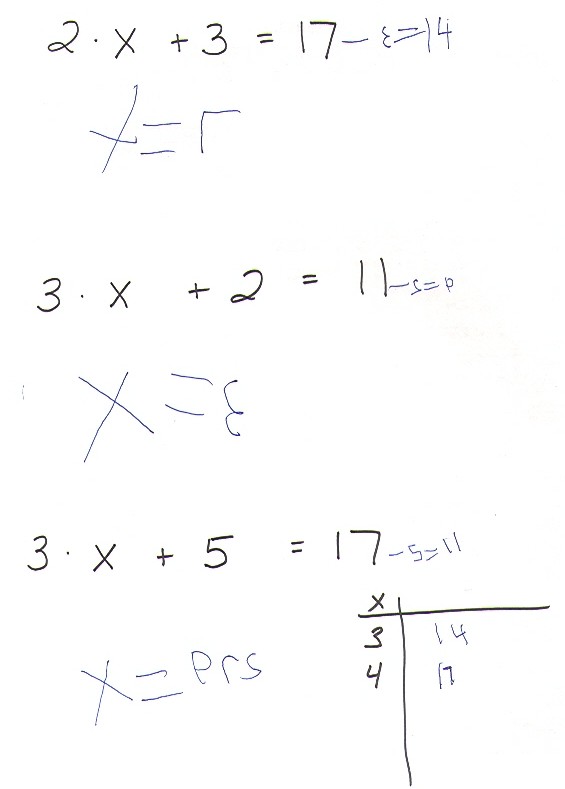 2 · x + 3 = 17 – 3 = 14
x = 7
3 · x + 2 = 11 – 2 = 9
x = 3
3 · x + 5 = 17 – 5 = 11
x
3 14
4 17
x =